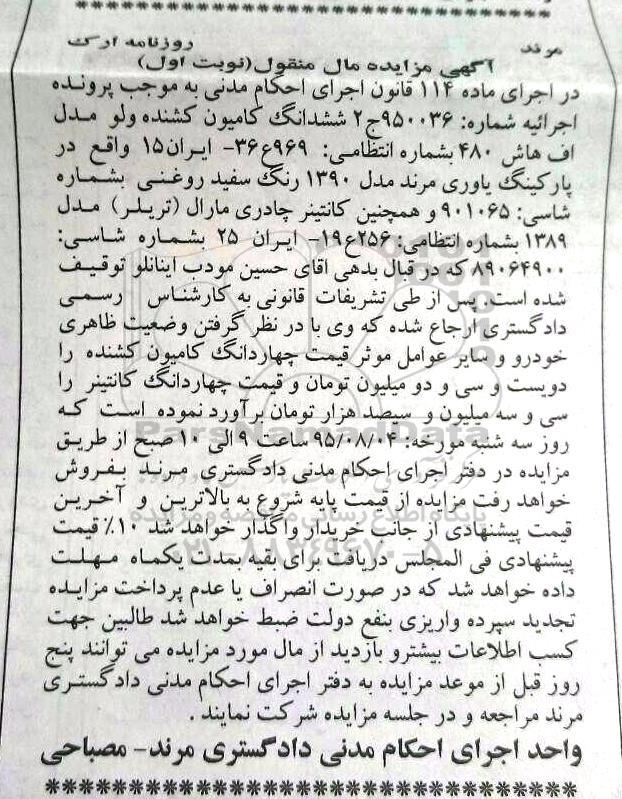 مرند روزنامه ارک
آگهی مزایده مال منقول(نوبت اول)
در اجرای ماده ۱۱۴ قانون اجرای احکام مدنی به موجب پرونده
اجرائیه شماره: ۹۵۰۰۳۶ج۲ ششدانگ کامیون کشنده ولو مدل
اف هاش ۴۸۰ بشماره انتظامی: ۹۶۹ع۳۶- ایران۱۵ واقع در
پارکینگ یاوری مرند مدل ۱۳۹۰ رنگ سفید روغنی بشماره
شاسی: ۹۰۱۰۶۵ و همچنین کانتینر چادری مارال (تریلر) مدل
۱۳۸۹ بشماره انتظامی: ۲۵۶ع۱۹- ایران ۲۵ بشماره شاسی:
۸۹۰۶۴۹۰۰ که در قبال بدهی اقای حسین مودب اینانلو توقیف
شده است. پس از طی تشریفات قانونی به کارشناس رسمی
دادگستری ارجاع شده که وی با در نظر گرفتن وضعیت ظاهری
خودرو و سایر عوامل موثر قیمت چهاردانگ کامیون کشنده را
دویست و سی و دو میلیون تومان و قیمت چهاردانگ کانتینر را
سی و سه میلیون و سیصد هزار تومان برآورد نموده است که
روز سه شنبه مورخه: ۹۵/۰۸/۰۴ ساعت ۹ الی ۱۰ صبح از طریق
مزایده در دفتر اجرای احکام مدنی دادگستری مرند بفروش
خواهد رفت مزایده از قیمت پایه شروع به بالاترین و آخرین
قیمت پیشنهادی از جانب خریدار واگذار خواهد شد ۱۰٪ قیمت
پیشنهادی فی المجلس دریافت برای بقیه بمدت یکماه مهلت
داده خواهد شد که در صورت انصراف یا عدم پرداخت مزایده
تجدید سپرده واریزی بنفع دولت ضبط خواهد شد طالبین جهت
کسب اطلاعات بیشترو بازدید از مال مورد مزایده می توانند پنج
روز قبل از موعد مزایده به دفتر اجرای احکام مدنی دادگستری
مرند مراجعه و در جلسه مزایده شرکت نمایند .
واحد اجرای احکام مدنی دادگستری مرند- مصباحی
ParsNamadData
۰۲۱-۸۸۳۴۹۶۷۰-۵